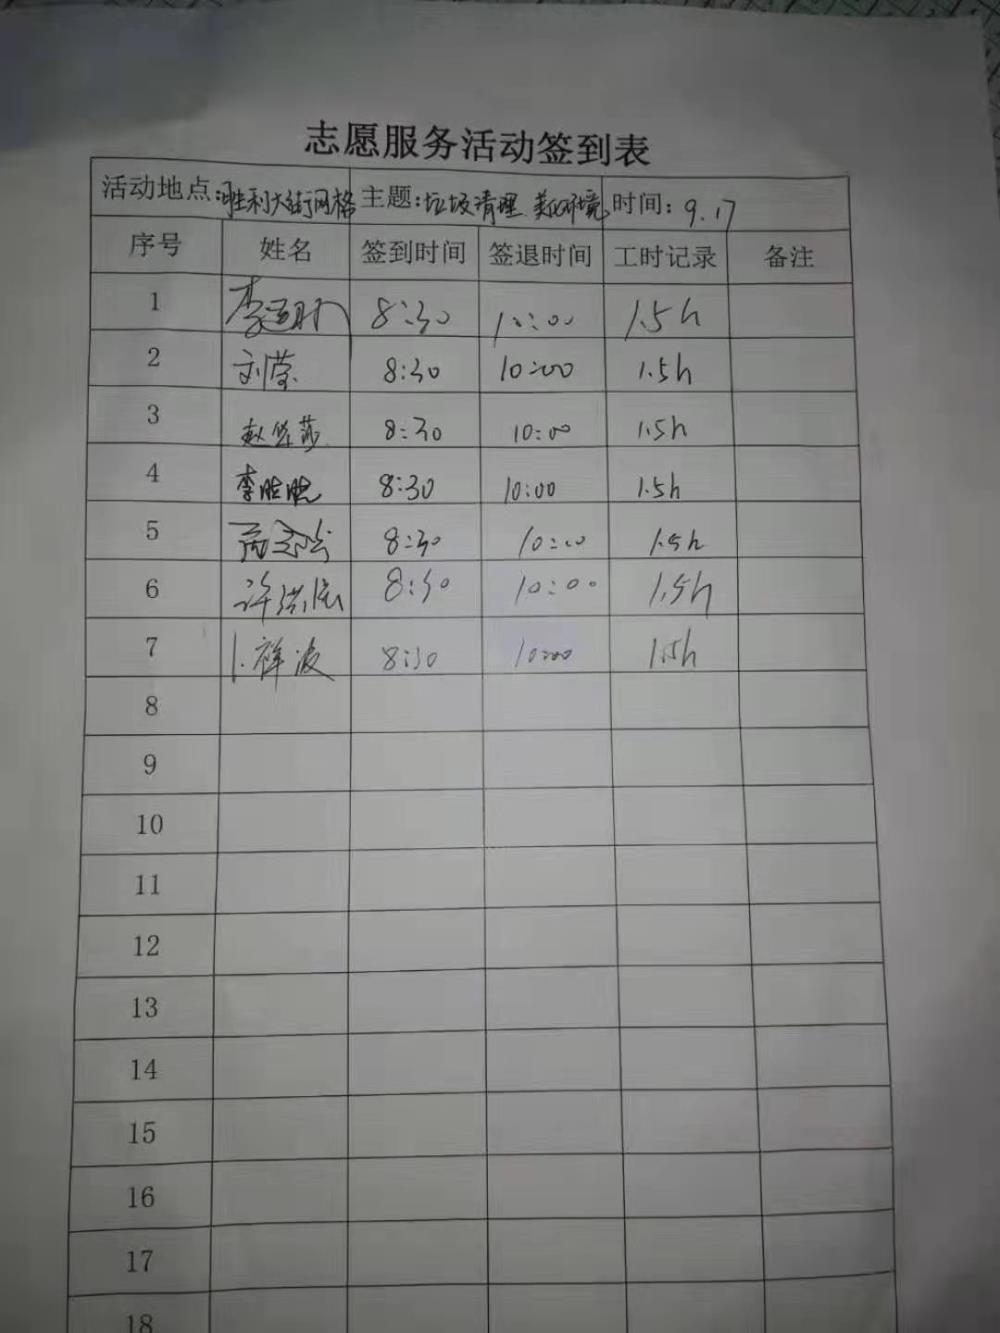 志愿服务活动签到表
活动地点:胜利大街网格 主题:垃圾清理 美化环境 时间:9.17
序号 姓名 签到时间 签退时间 工时记录 备注
1 李 8:30 10:00 1.5h
2 刘莹 8:30 10:00 1.5h
3 赵 莎 8:30 10:00 1.5h
4 李 8:30 10:00 1.5h
5 8:30 10:00 1.5h
6 许洪 8:30 10:00 1.5h
7 祥波 8:30 10:00 1.5h
8
9
10
11
12
13
14
15
16
17
18